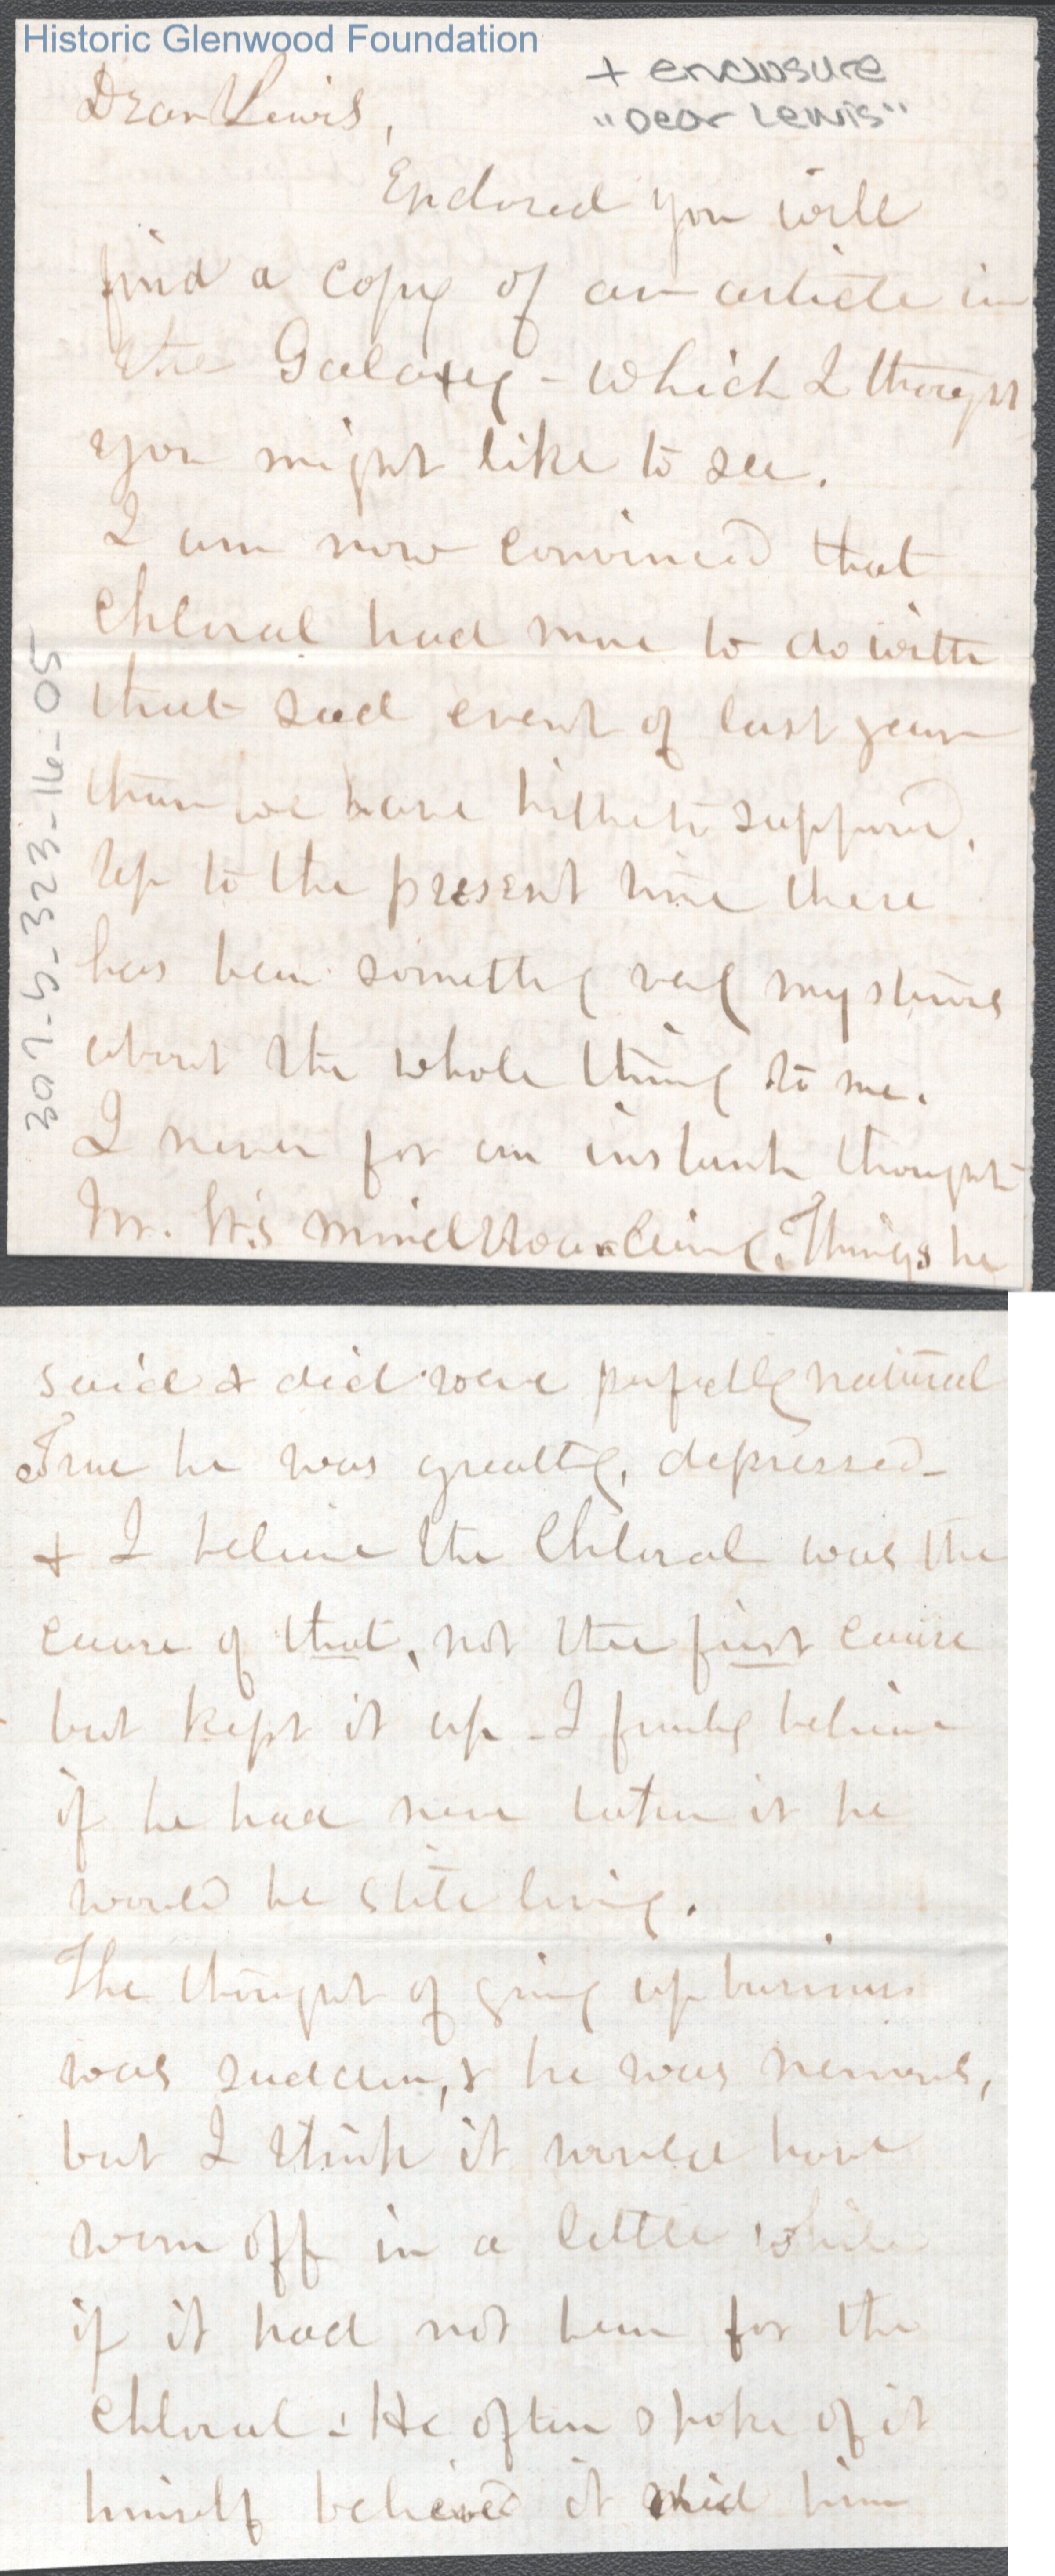 Historic Glenwood Foundation
+ enclosure
"Dear Lewis"
307-5-323-16-05
Dear Lewis,
Enclosed you will
find a copy of an article in
the Galaxy - which I thought
you might like to see.
I am now convinced that
Chloral had more to do with
that sad event of last year
than we have hitherto supposed.
Up to the present time there
has been something very mysterious
about the whole thing to me.
I never for an instant thought
Mr. W's mind Things he
said & did were perfectly natural
True he was greatly depressed -
& I believe the Chloral was the
cause of that, not the first cause
but kept it up - I firmly believe
if he had never taken it he
would be still living.
The thought of giving up business
was sudden, & he was nervous,
but I think it would have
worn off in a little while
if it had not been for the
Chloral - He often spoke of it
himself believed it did him